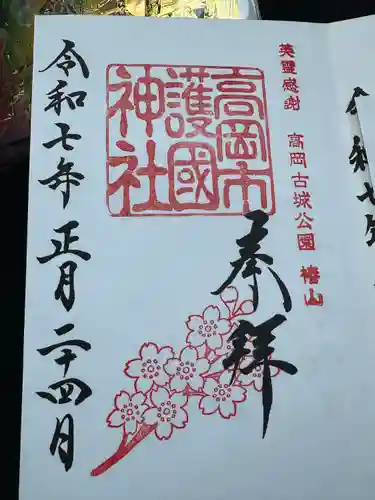 令和七年
英靈感謝 高岡古城公園 椿山
奉拝
高岡市
護國
神社
令和七年 正月 二十四月